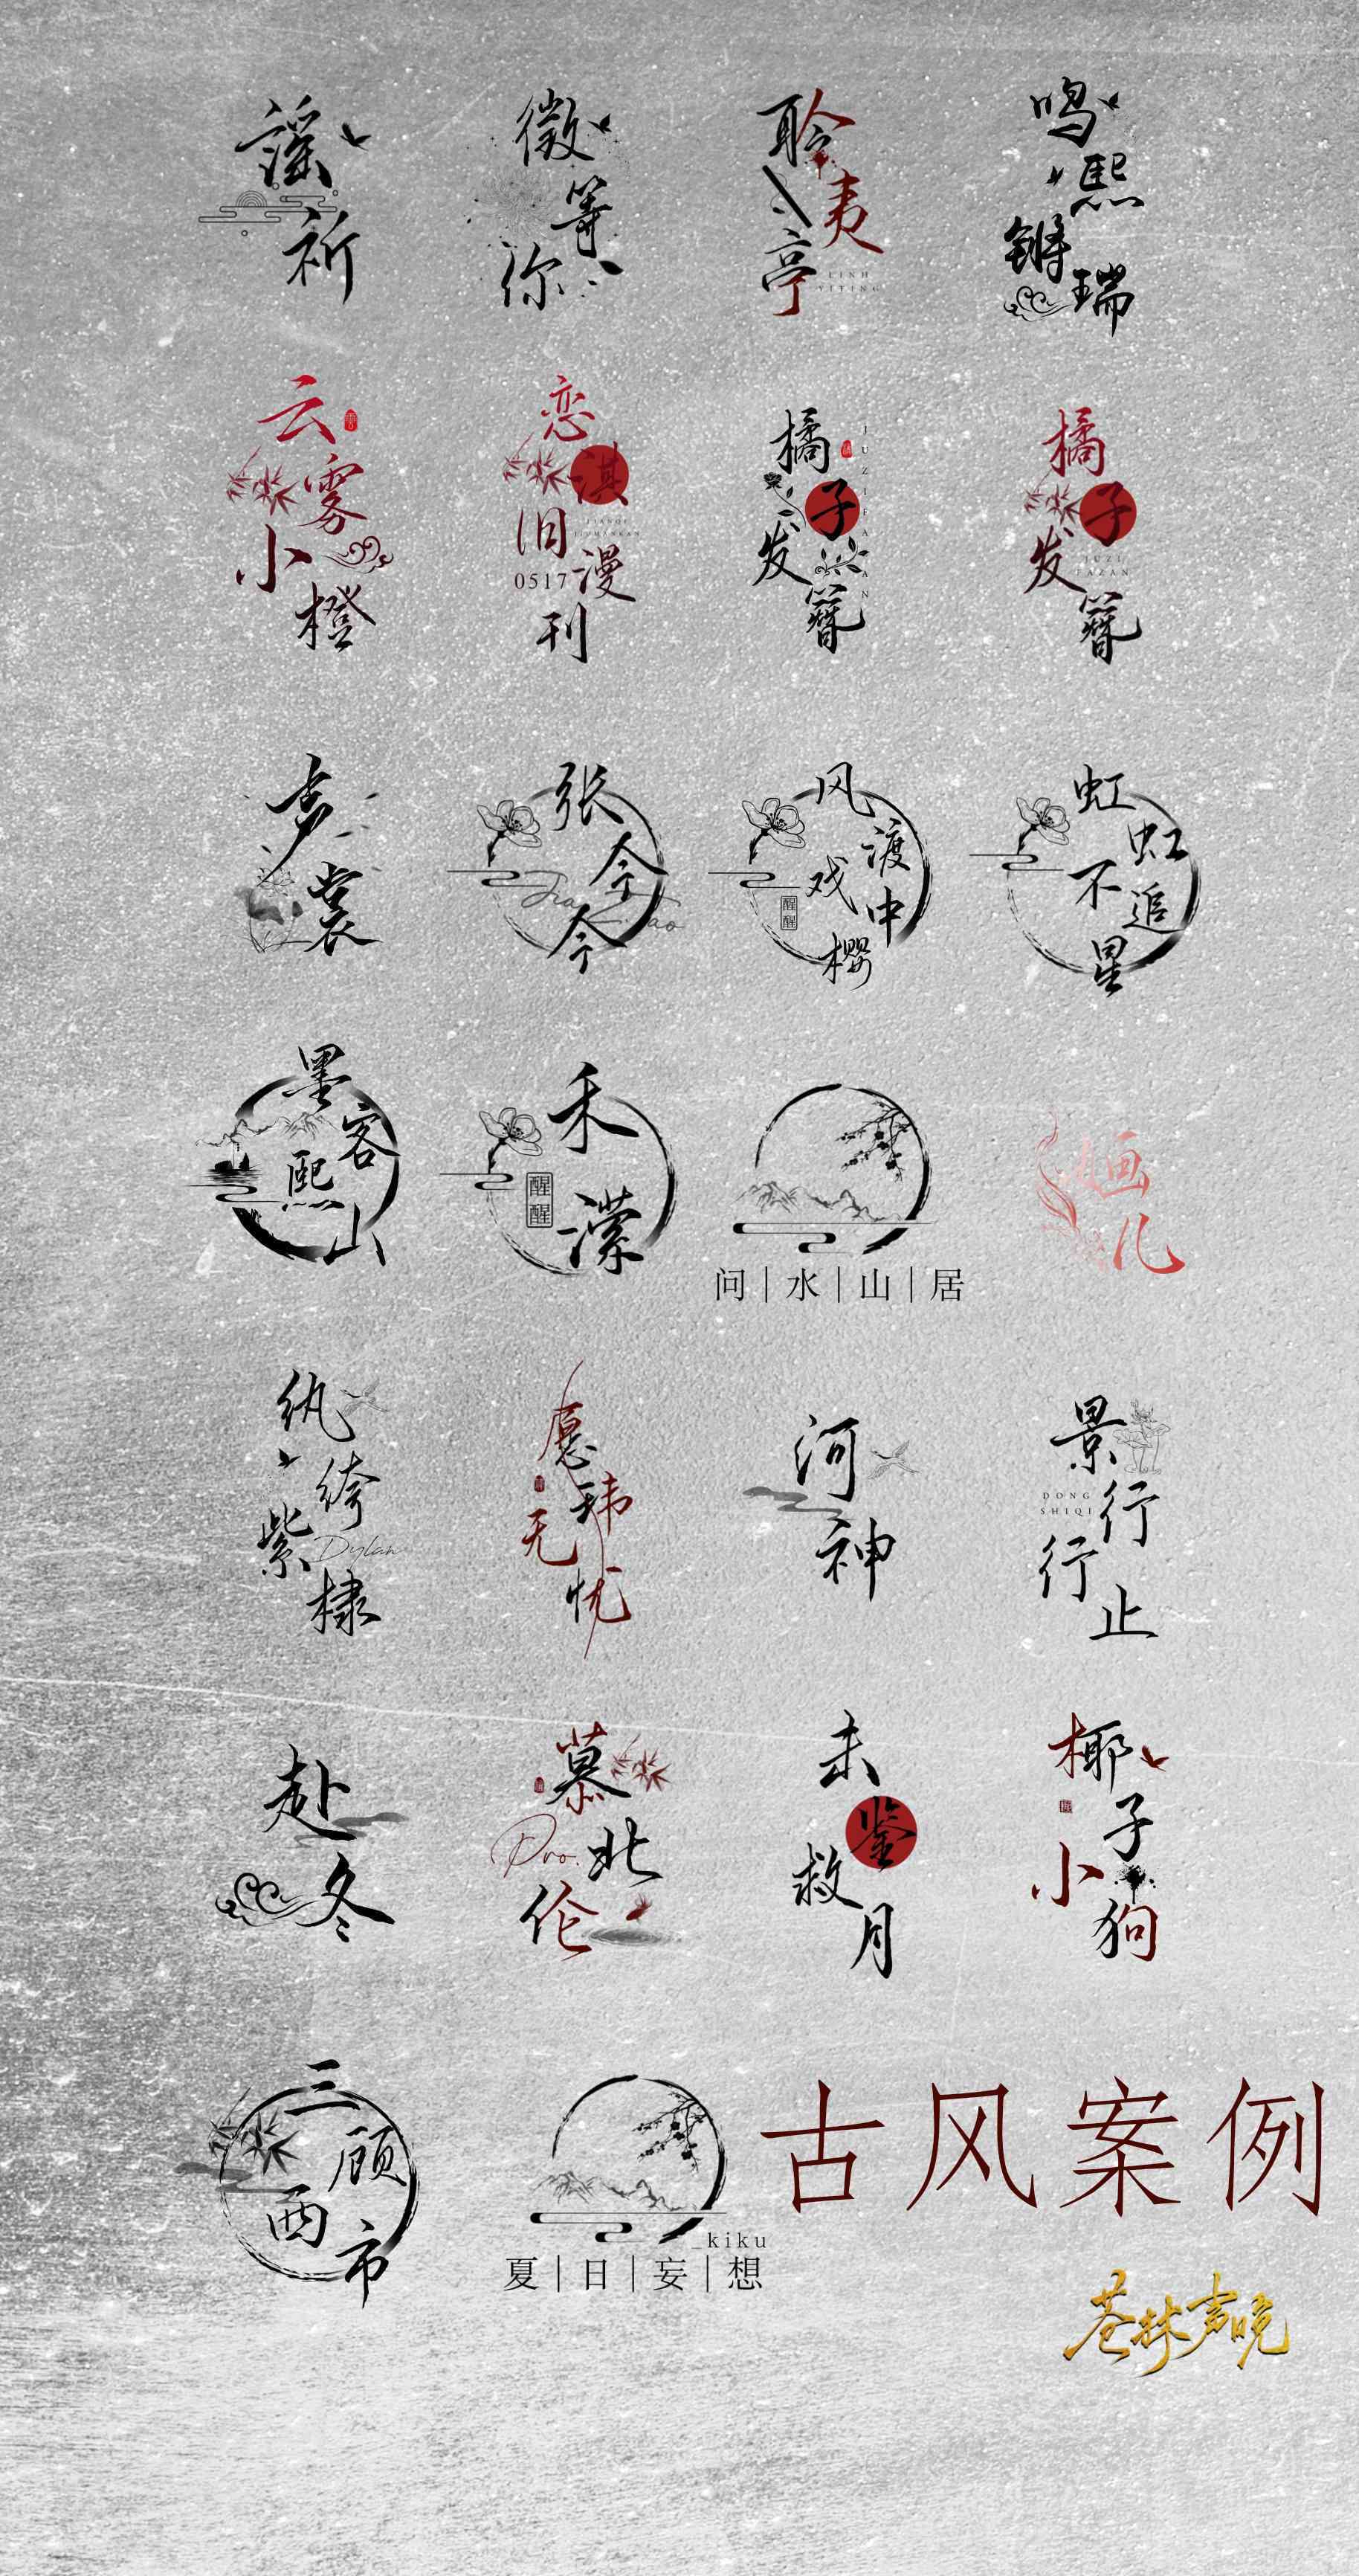 谣祈
微等你
聆夷亭
LINH
YITING
鸣熙锵瑞
云雾小橙
恋淇旧漫刊
LIANQI
JIUMANKAN
0517
橘子发簪
JUZIFAZAN
橘子发簪
JUZI
FAZAN
声裳
张今今
风渡戏中樱
醒醒
虹虹不追星
墨客熙山
禾濴
醒醒
问|水|山|居
画儿
纨绔紫棣
Dylan
愿玮无忧
河神
景行行止
DONG
SHIQI
赴冬
慕北伦
Pro.
未鉴救月
椰子小狗
三顾西市
_kiku
夏|日|妄|想
古风案例
苍林声晚